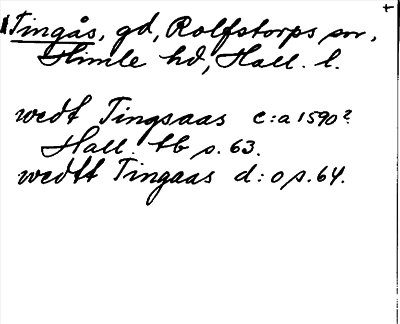 +
Tingås, gd, Rolfstorps sn,
Himle hd, Hall. l.
wedt Tingsaas c:a 1590?
Hall. tb s. 63.
wedtt Tingaas d:o s. 64.